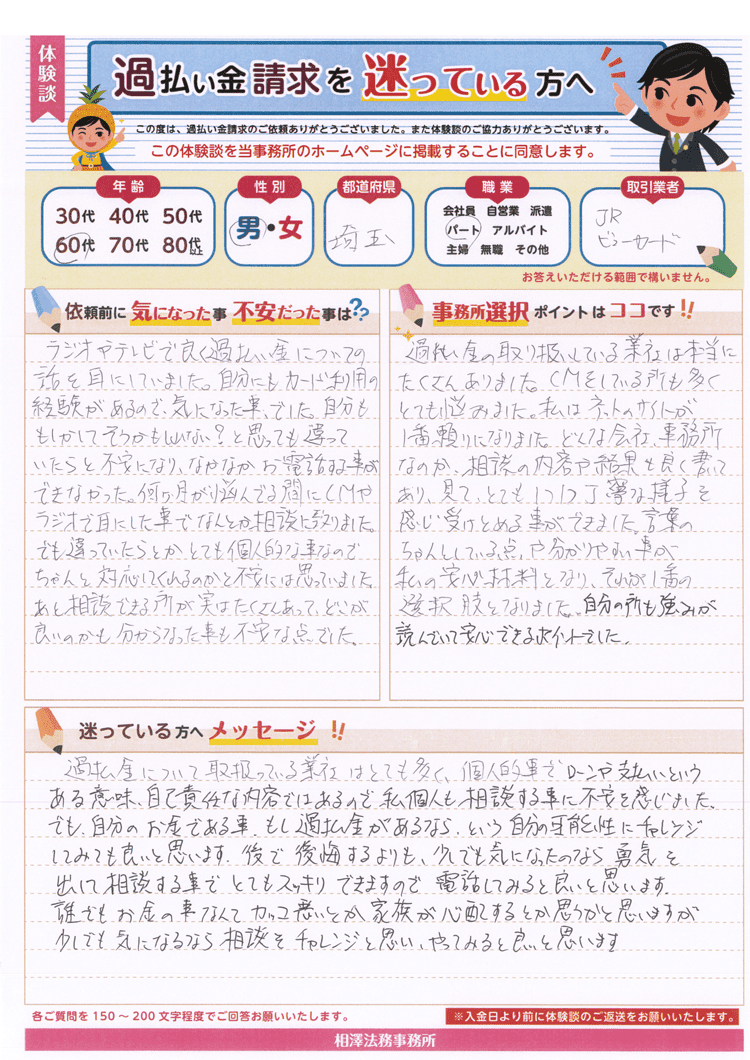 体験談
過払い金請求を迷っている方へ
この度は、過払い金請求のご依頼ありがとうございました。また体験談のご協力ありがとうございます。
この体験談を当事務所のホームページに掲載することに同意します。
年齢
30代 40代 50代
60代 70代 80代以上
性別
男・女
都道府県
埼玉
職業
会社員 自営業 派遣
パート アルバイト
主婦 無職 その他
取引業者
JR
ビューカード
お答えいただける範囲で構いません。
依頼前に気になった事 不安だった事は??
ラジオやテレビで良く過払い金についての
話を耳にしていました。自分にもカード利用の
経験があるので、気になった事でした。自分も
もしかしてそうかもしれない?と思っても違って
いたらと不安になり、なかなかお電話する事が
できなかった。何ヶ月か悩んでる間にCMや
ラジオで耳にした事でなんとか相談に致りました。
でも違っていたらとか、とても個人的な事なので
ちゃんと対応してくれるのかと不安には思っていました。
あと相談できる所が実はたくさんあって、どこが
良いのかも分からなった事も不安な点でした。
事務所選択ポイントはココです!!
過払い金の取り扱いしている業社は本当に
たくさんありました。CMをしている所も多く
とても悩みました。私はネットのサイトが
1番頼りになりました。どんな会社、事務所
なのか、相談の内容や結果も良く書いて
あり、見て、とても1つ1つ丁寧な様子を
感じ受けとめる事ができました。言葉の
ちゃんとしている点や分かりやすい事が
私の安心材料となり、それが1番の
選択肢となりました。自分の所も強みが
読んでいて安心できるポイントでした。
迷っている方へメッセージ!!
過払金について取扱っている業社はとても多く、個人的事でローンや支払いという
ある意味、自己責任な内容ではあるので、私個人も相談する事に不安を感じました。
でも、自分のお金である事、もし過払金があるなら、という自分の可能性にチャレンジ
してみても良いと思います。後で後悔するよりも、少しでも気になったのなら勇気を
出して相談する事でとてもスッキリできますので電話してみると良いと思います。
誰でもお金の事なんてカッコ悪いとか家族が心配するとか思うかと思いますが
少しでも気になるなら相談をチャレンジと思い、やってみると良いと思います
各ご質問を150～200文字程度でご回答お願いいたします。
※入金日より前に体験談のご返送をお願いいたします。
相澤法務事務所